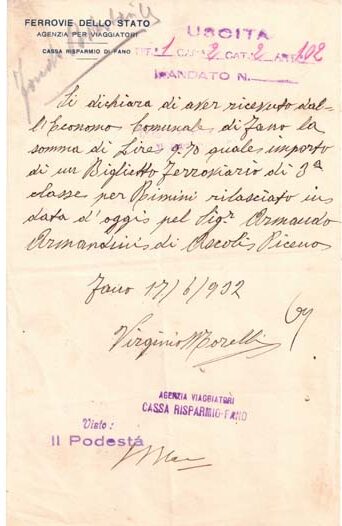 FERROVIE DELLO STATO
AGENZIA PER VIAGGIATORI
CASSA RISPARMIO DI FANO
USCITA
TIT. 1 CAP. 2 CAT. 2 ART. 102
MANDATO N.
Si dichiara di aver ricevuto dal-
l'Economo Comunale di Fano la
somma di Lire 9.70 quale importo
di un Biglietto Ferroviario di 3ª
classe per Rimini rilasciato in
data d'oggi pel Sigr. Armando
Armandini di Ascoli Piceno
Fano 17/6/932
Virginio Morelli
AGENZIA VIAGGIATORI
CASSA RISPARMIO-FANO
Visto:
Il Podestá